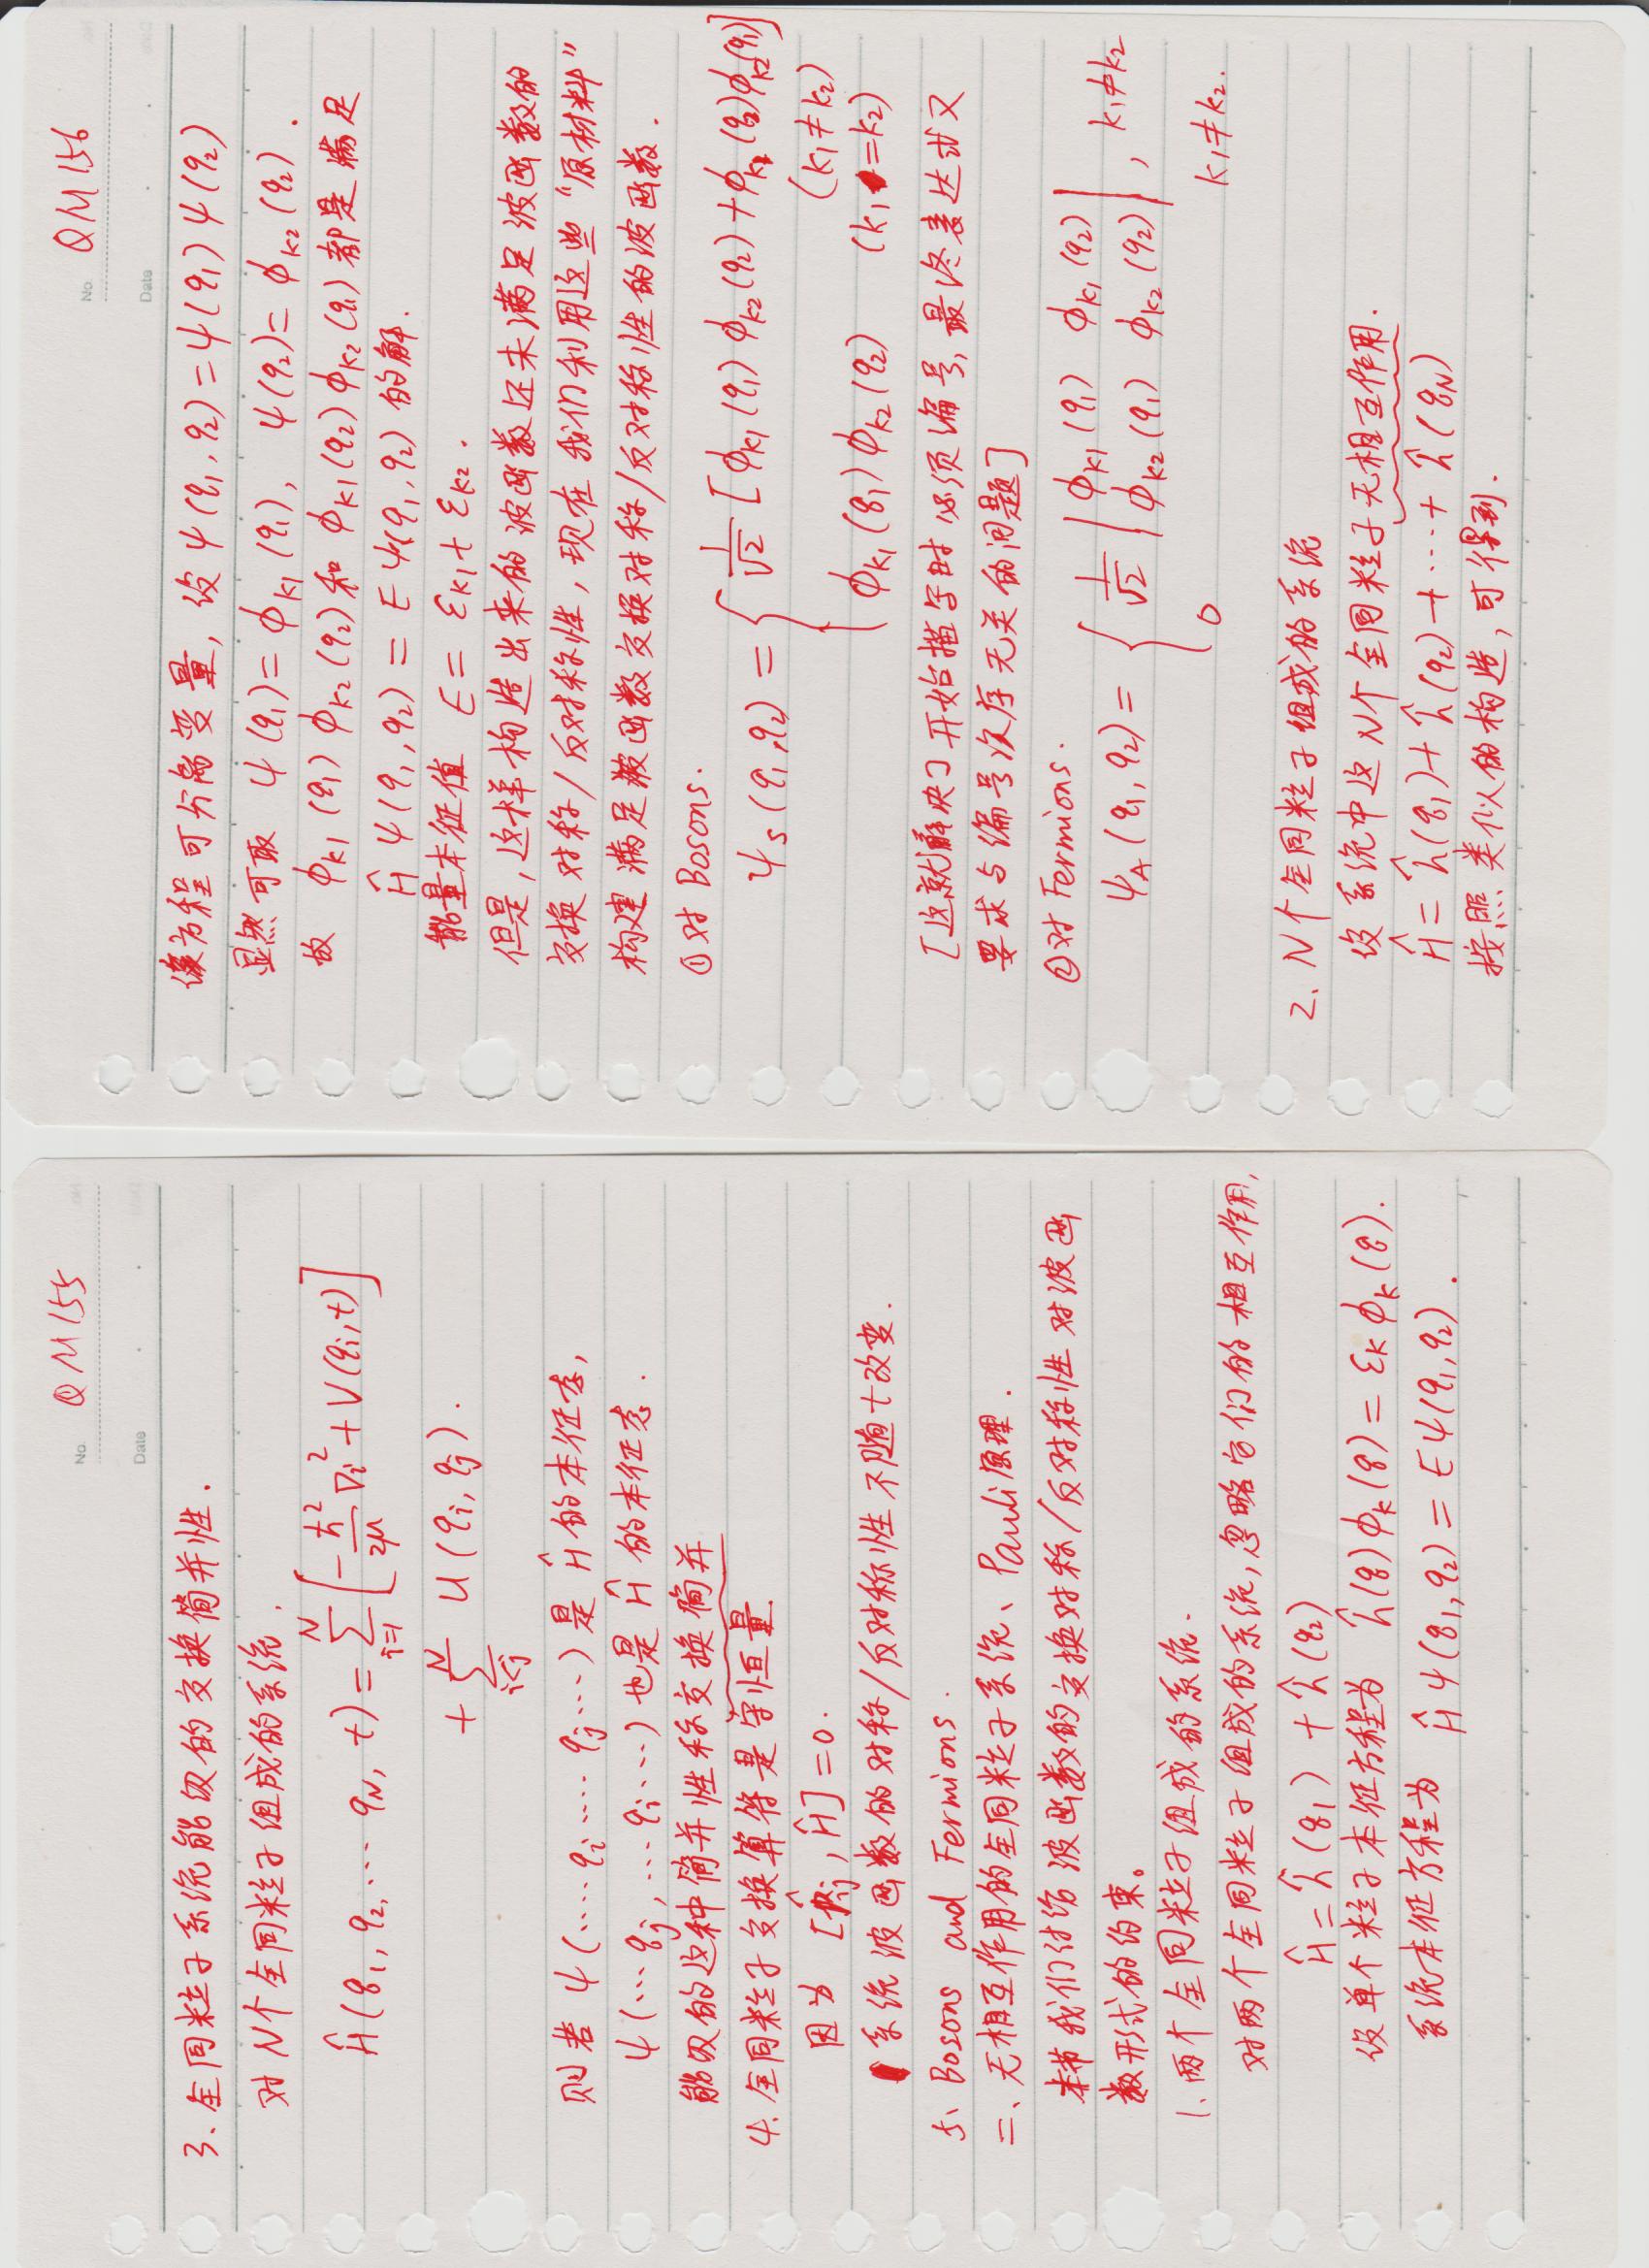 No. QM155
Date
3、全同粒子系统能级的交换简并性.
对N个全同粒子组成的系统,
Ĥ(q₁, q₂, ··· q_N, t) = Σ_{i=1}^{N} [-ħ²/2μ ∇ᵢ² + V(qᵢ,t)]
+ Σ_{i<j}^{N} U(qᵢ, qⱼ).
则若 ψ(····qᵢ····· qⱼ···) 是 Ĥ 的本征态,
ψ(··· qⱼ, ··· qᵢ····) 也是 Ĥ 的本征态.
能级的这种简并性称交换简并
4. 全同粒子交换算符是守恒量.
因为 [P̂ᵢⱼ, Ĥ] = 0.
系统波函数的对称/反对称性不随t改变.
5、Bosons and Fermions.
二、无相互作用的全同粒子系统、Pauli原理.
本节我们讨论波函数的交换对称/反对称性对波函
数形式的约束。
1、两个全同粒子组成的系统.
对两个全同粒子组成的系统,忽略它们的相互作用,
Ĥ = ĥ(q₁) + ĥ(q₂)
设单个粒子本征方程为 ĥ(q)ϕ_k(q) = ε_k ϕ_k(q).
系统本征方程为 Ĥψ(q₁,q₂) = Eψ(q₁,q₂).
No. QM156
Date
该方程可分离变量, 设 ψ(q₁,q₂) = ψ(q₁)ψ(q₂)
显然可取 ψ(q₁) = ϕ_{k1}(q₁), ψ(q₂) = ϕ_{k2}(q₂).
故 ϕ_{k1}(q₁)ϕ_{k2}(q₂) 和 ϕ_{k1}(q₂)ϕ_{k2}(q₁) 都是满足
Ĥψ(q₁,q₂) = Eψ(q₁,q₂) 的解.
能量本征值 E = ε_{k1} + ε_{k2}.
但是,这样构造出来的波函数还未满足波函数的
交换对称/反对称性, 现在我们利用这些“原材料”
构建满足波函数交换对称/反对称性的波函数.
① 对 Bosons.
ψ_S(q₁,q₂) = { 1/√2 [ϕ_{k1}(q₁)ϕ_{k2}(q₂) + ϕ_{k1}(q₂)ϕ_{k2}(q₁)]
(k₁≠k₂)
ϕ_{k1}(q₁)ϕ_{k2}(q₂) (k₁=k₂)
[这就解决了开始描写时必须编号, 最终表达式又
要求与编号次序无关的问题]
② 对 Fermions.
ψ_A(q₁,q₂) = { 1/√2 | ϕ_{k1}(q₁) ϕ_{k1}(q₂) ; ϕ_{k2}(q₁) ϕ_{k2}(q₂) |, k₁≠k₂
0 k₁≠k₂.
2. N个全同粒子组成的系统
设系统中这N个全同粒子无相互作用.
Ĥ = ĥ(q₁) + ĥ(q₂) + ··· + ĥ(q_N)
按照类似的构造, 可得到.